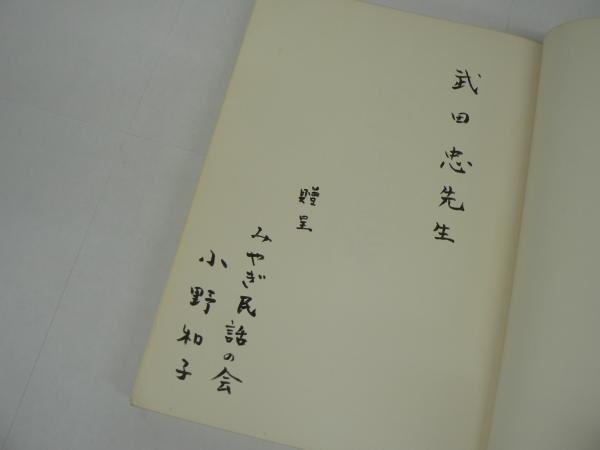 武田忠先生
贈呈
みやぎ民話の会
小野和子